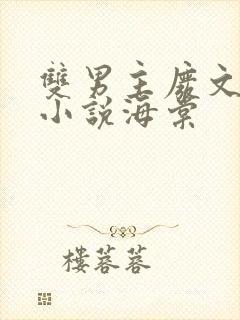 雙男主廢文
小說海棠
樓蓉蓉